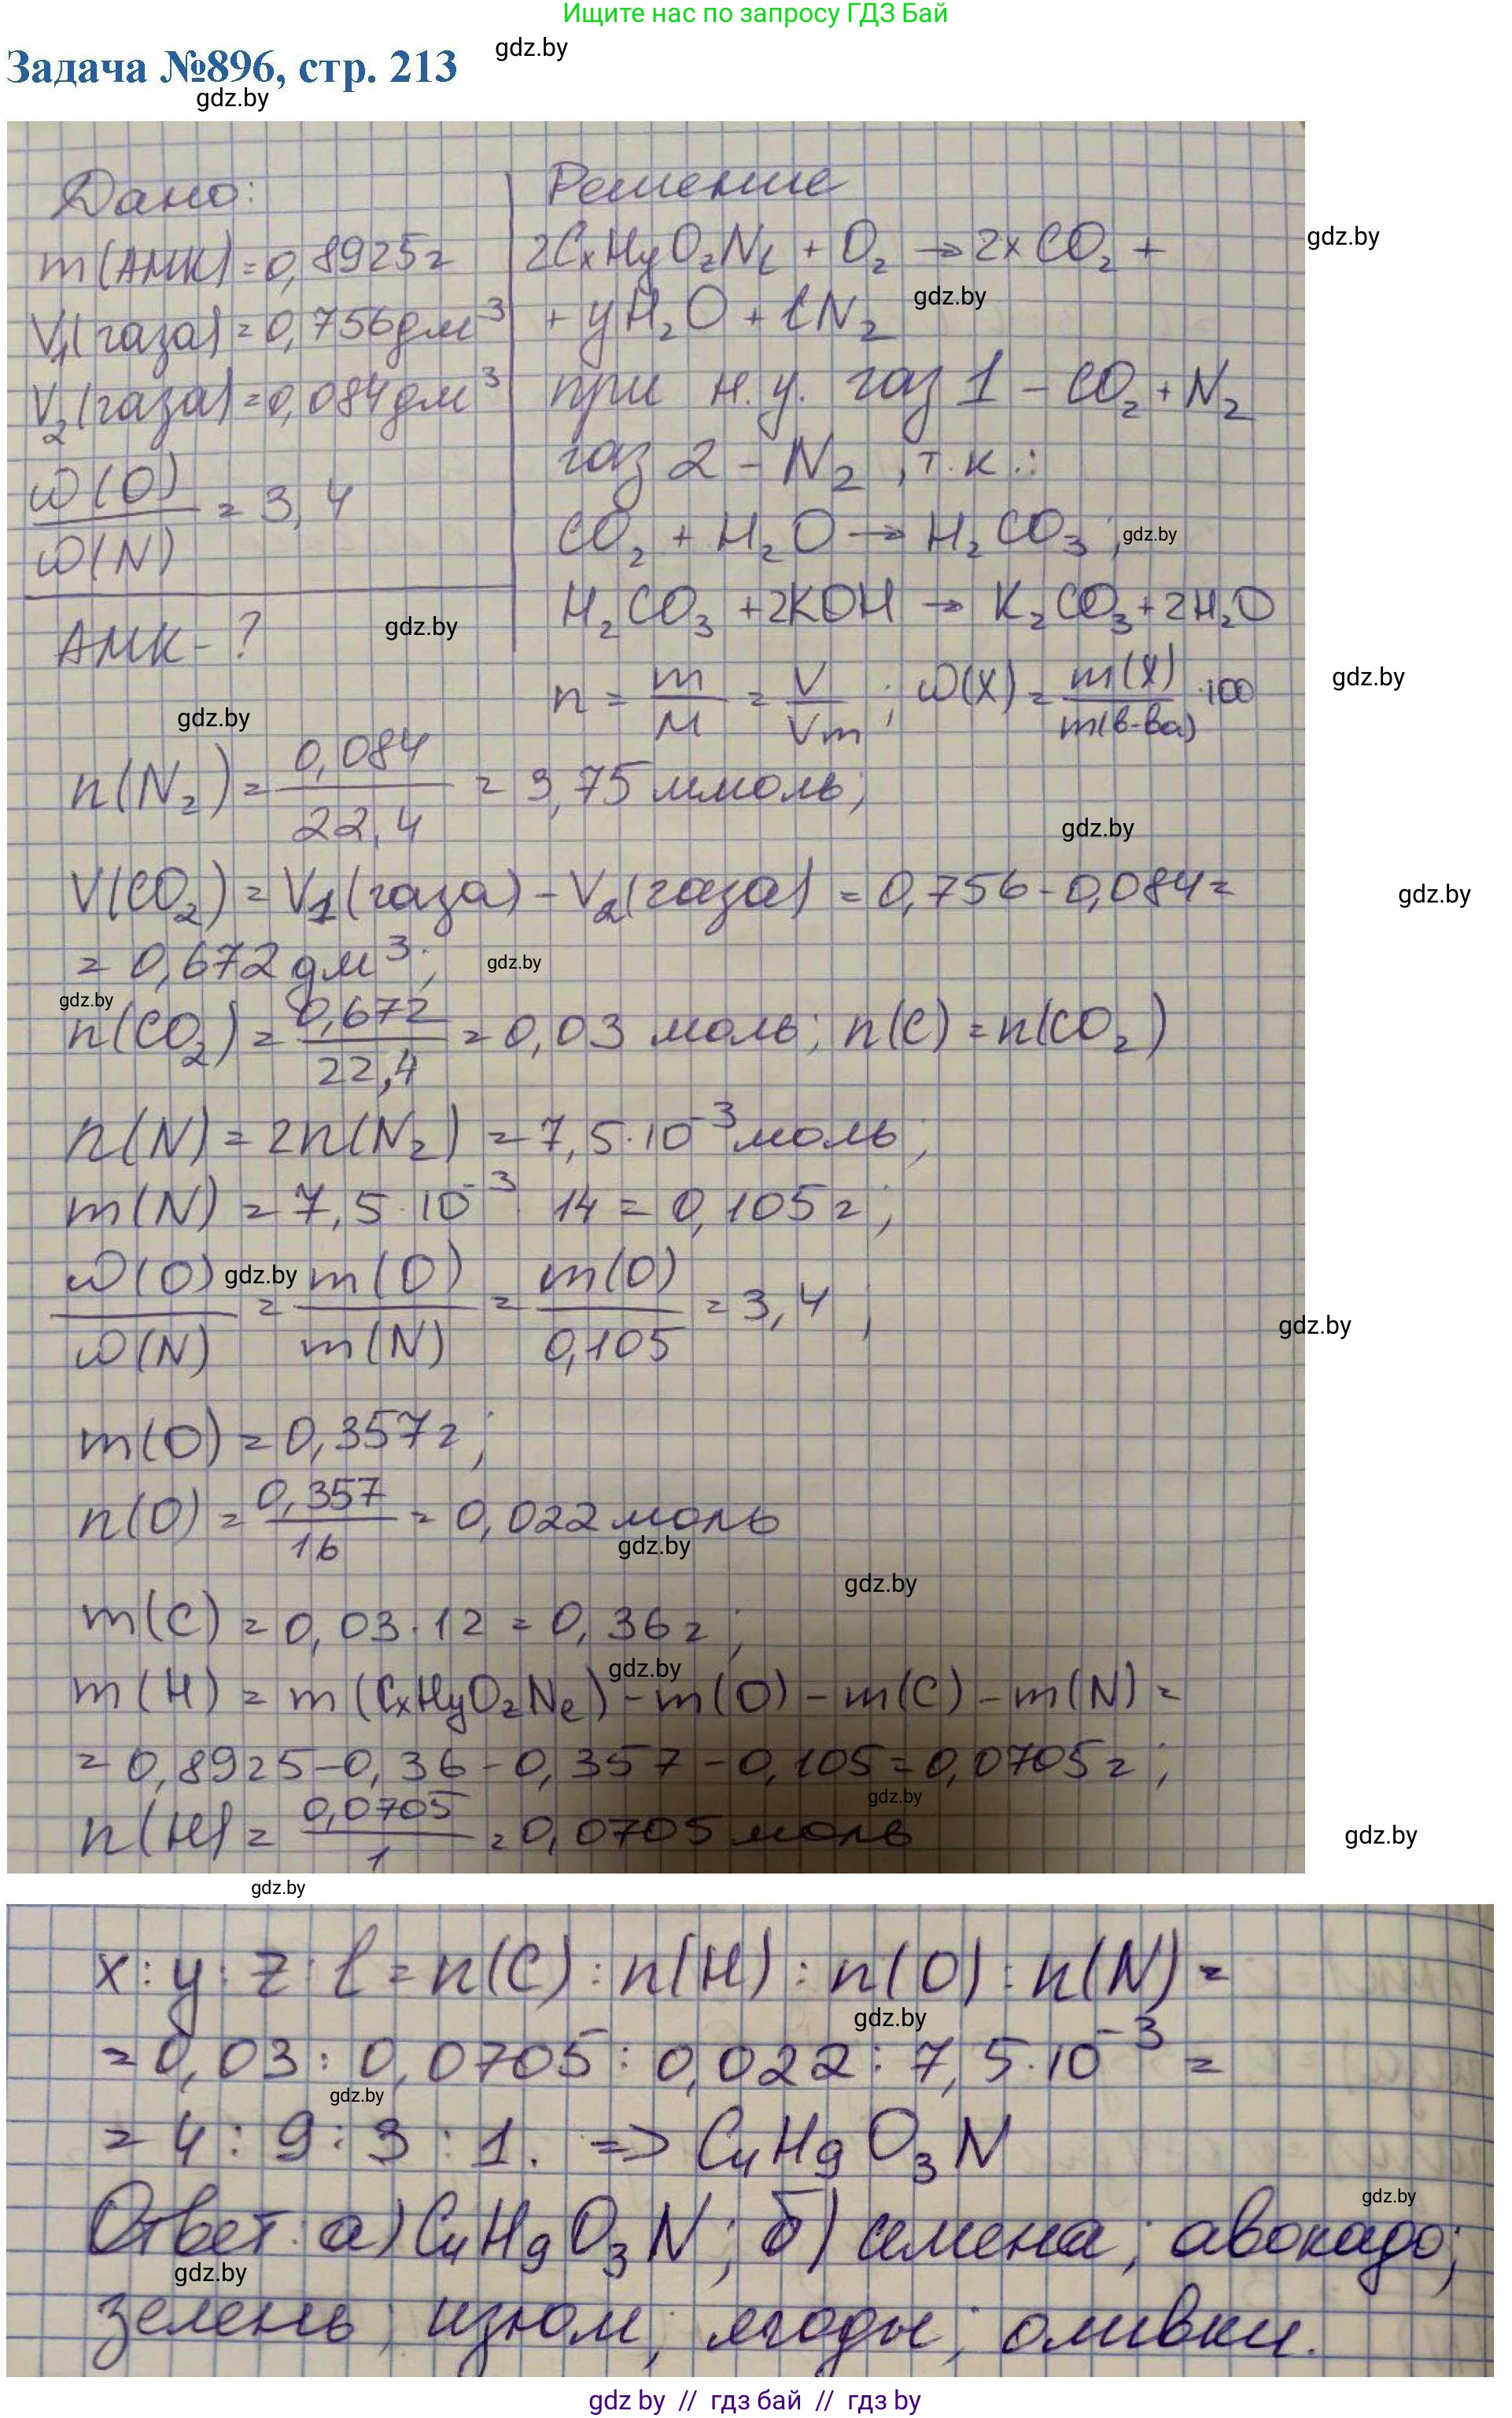 Ищите нас по запросу ГДЗ Бай
gdz.by
Задача №896, стр. 213
gdz.by
Дано:
m(АМК) = 0,8925г
V₁(газа) = 0,756дм³
V₂(газа) = 0,084дм³
ω(O)/ω(N) = 3,4
АМК - ?
gdz.by
gdz.by
Решение
2CxHyOzNl + O₂ → 2xCO₂ +
gdz.by
gdz.by
+ yH₂O + lN₂
при н.у. газ 1 - CO₂ + N₂
газ 2 - N₂, т.к.:
CO₂ + H₂O → H₂CO₃;
gdz.by
H₂CO₃ + 2KOH → K₂CO₃ + 2H₂O
n = m/M = V/Vm; ω(X) = m(X)/m(в-ва) · 100
gdz.by
n(N₂) = 0,084/22,4 = 3,75 ммоль;
gdz.by
V(CO₂) = V₁(газа) - V₂(газа) = 0,756 - 0,084 =
gdz.by
= 0,672 дм³;
gdz.by
gdz.by
n(CO₂) = 0,672/22,4 = 0,03 моль; n(C) = n(CO₂)
n(N) = 2n(N₂) = 7,5·10⁻³ моль;
m(N) = 7,5·10⁻³ · 14 = 0,105г;
gdz.by
ω(O)/ω(N) = m(O)/m(N) = m(O)/0,105 = 3,4;
gdz.by
m(O) = 0,357г;
n(O) = 0,357/16 = 0,022 моль
gdz.by
gdz.by
m(C) = 0,03·12 = 0,36г;
gdz.by
m(H) = m(CxHyOzNl) - m(O) - m(C) - m(N) =
= 0,8925 - 0,36 - 0,357 - 0,105 = 0,0705г;
gdz.by
n(H) = 0,0705/1 = 0,0705 моль
gdz.by
gdz.by
x : y : z : l = n(C) : n(H) : n(O) : n(N) =
gdz.by
= 0,03 : 0,0705 : 0,022 : 7,5·10⁻³ =
gdz.by
= 4 : 9 : 3 : 1. => C₄H₉O₃N
gdz.by
Ответ: а) C₄H₉O₃N; б) семена; авокадо;
gdz.by
зелень; изюм; ягоды; оливки.
gdz by // гдз бай // гдз by